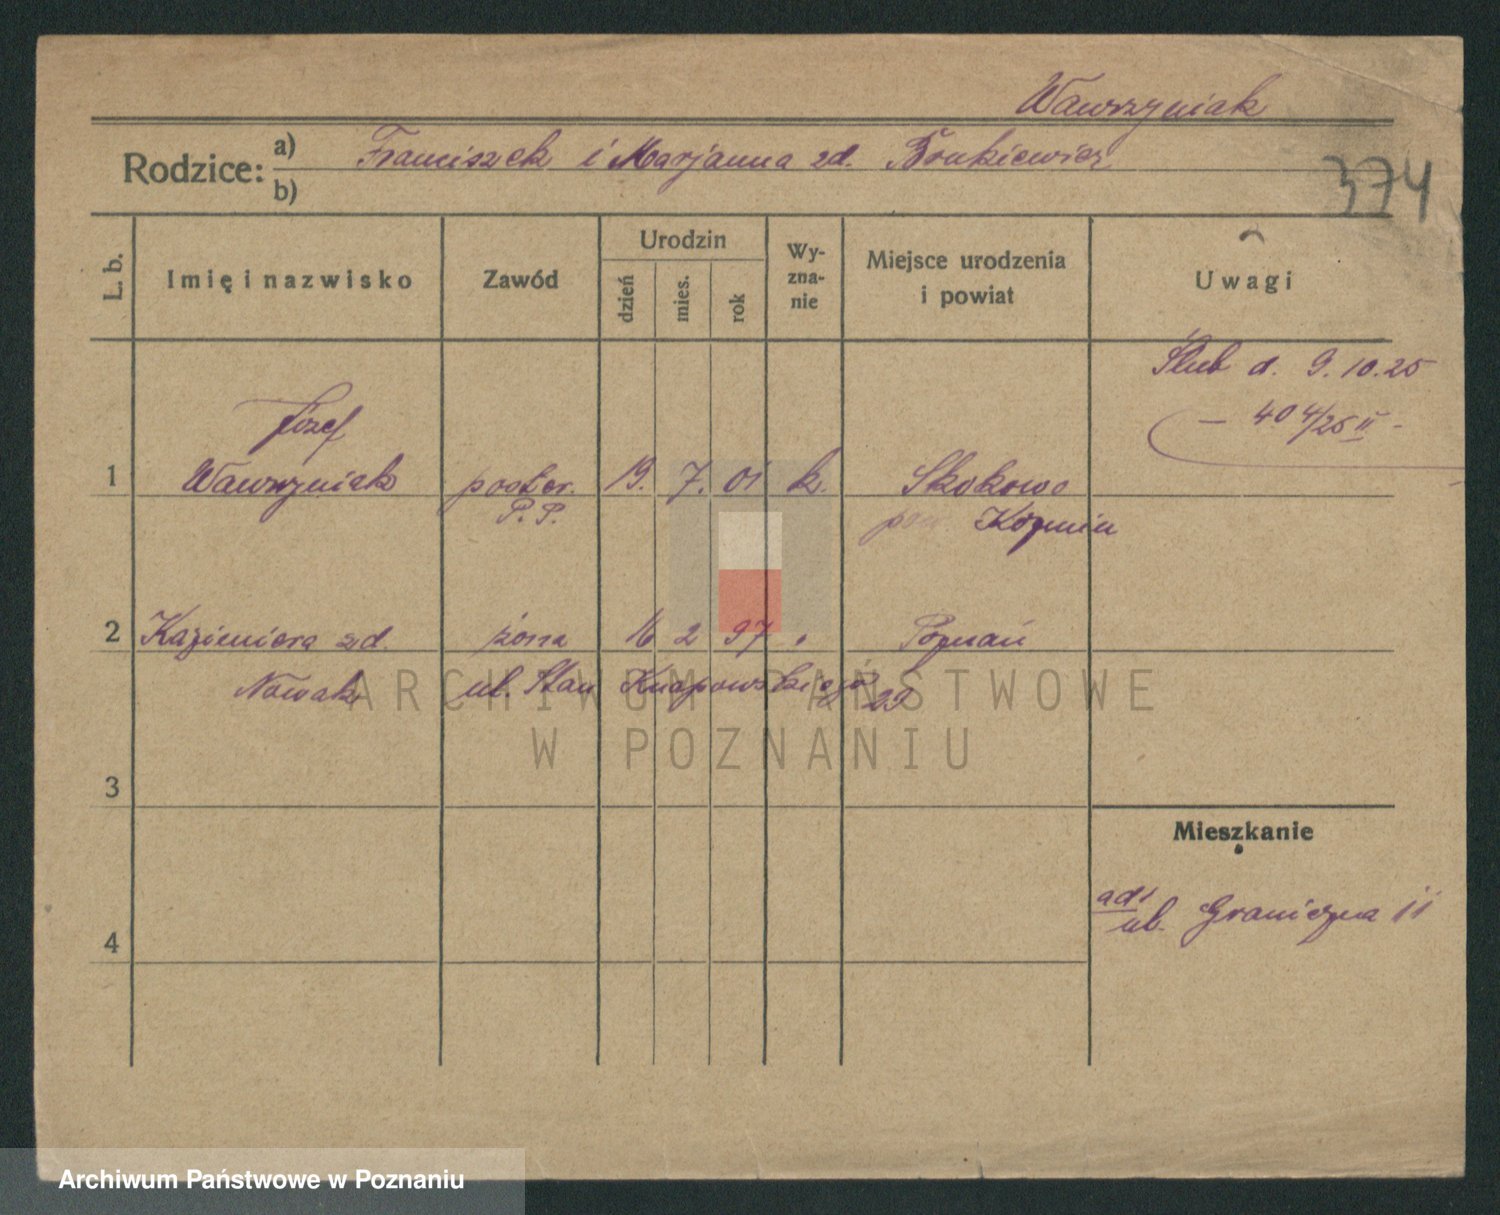 Wawrzyniak
Rodzice: a) Franciszek i Marjanna zd. Bonkiewicz
b)
374
L. b.
Imię i nazwisko
Zawód
Urodzin
dzień
mies.
rok
Wy-
zna-
nie
Miejsce urodzenia
i powiat
Uwagi
Ślub d. 9.10.25
– 404/25 II –
Józef
1 Wawrzyniak poster. 19. 7. 01 k. Skokowo
P.P. pow. Koźmin
2 Kazimiera zd. żona 16 2 97 Poznań
Nowak ul. Stan Knapowskiego 29
3
Mieszkanie
ul. Graniczna 11
4
ARCHIWUM PAŃSTWOWE
W POZNANIU
Archiwum Państwowe w Poznaniu